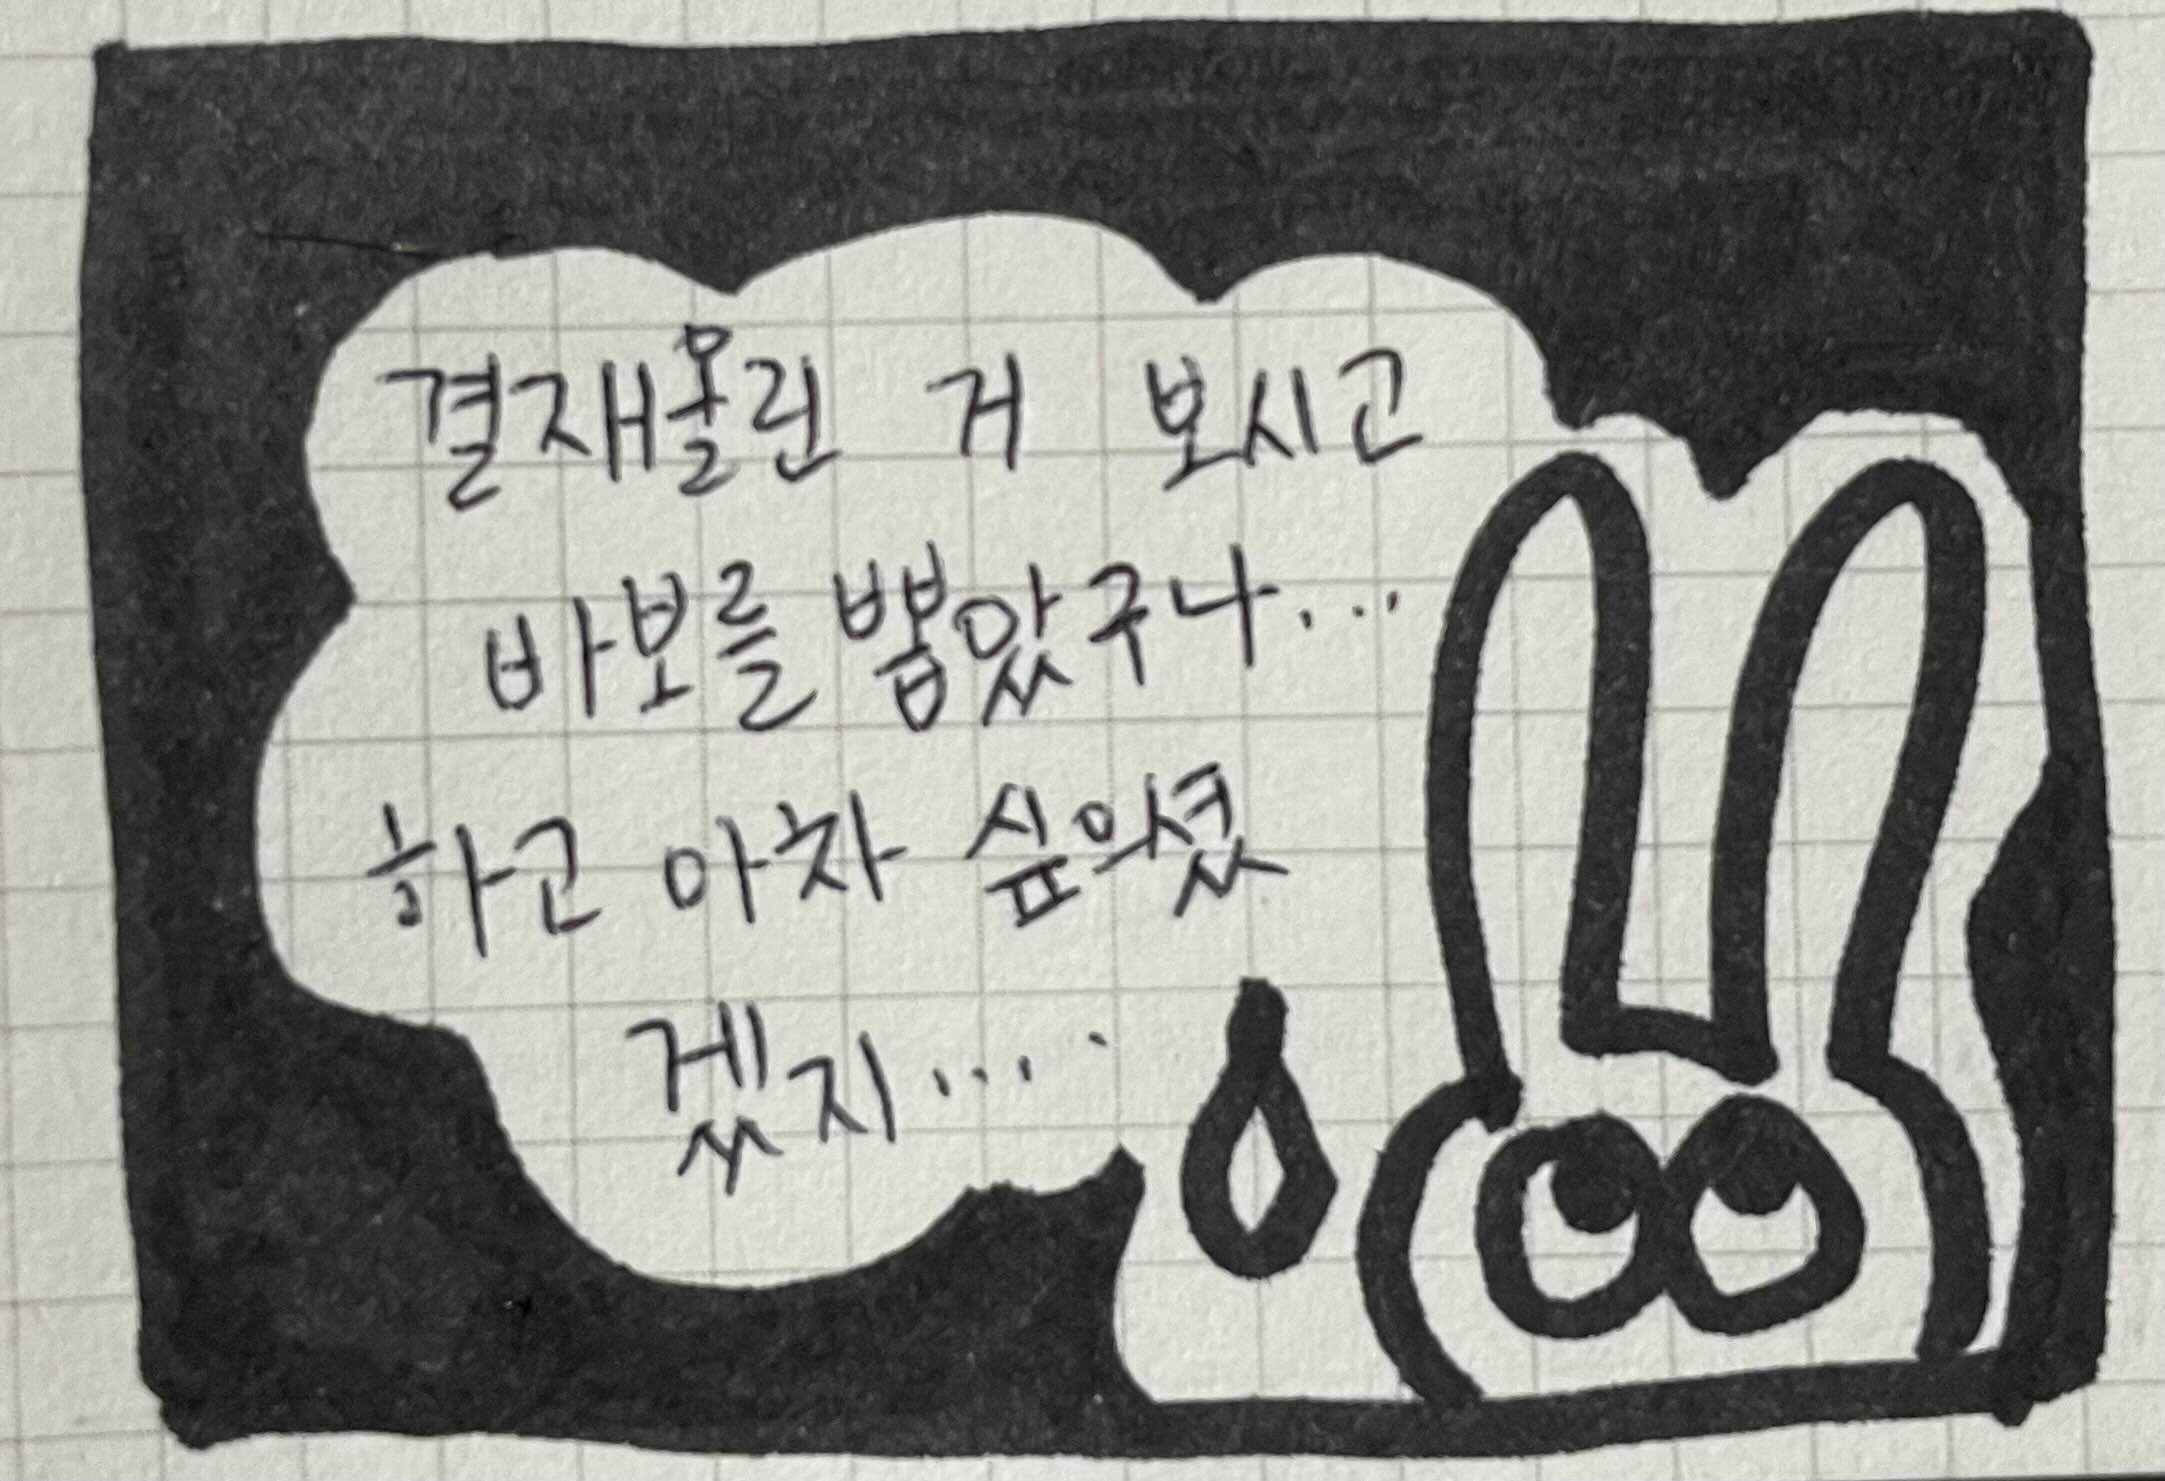 결재올린 거 보시고
바보를 뽑았구나...
하고 아차 싶으셨
겠지....